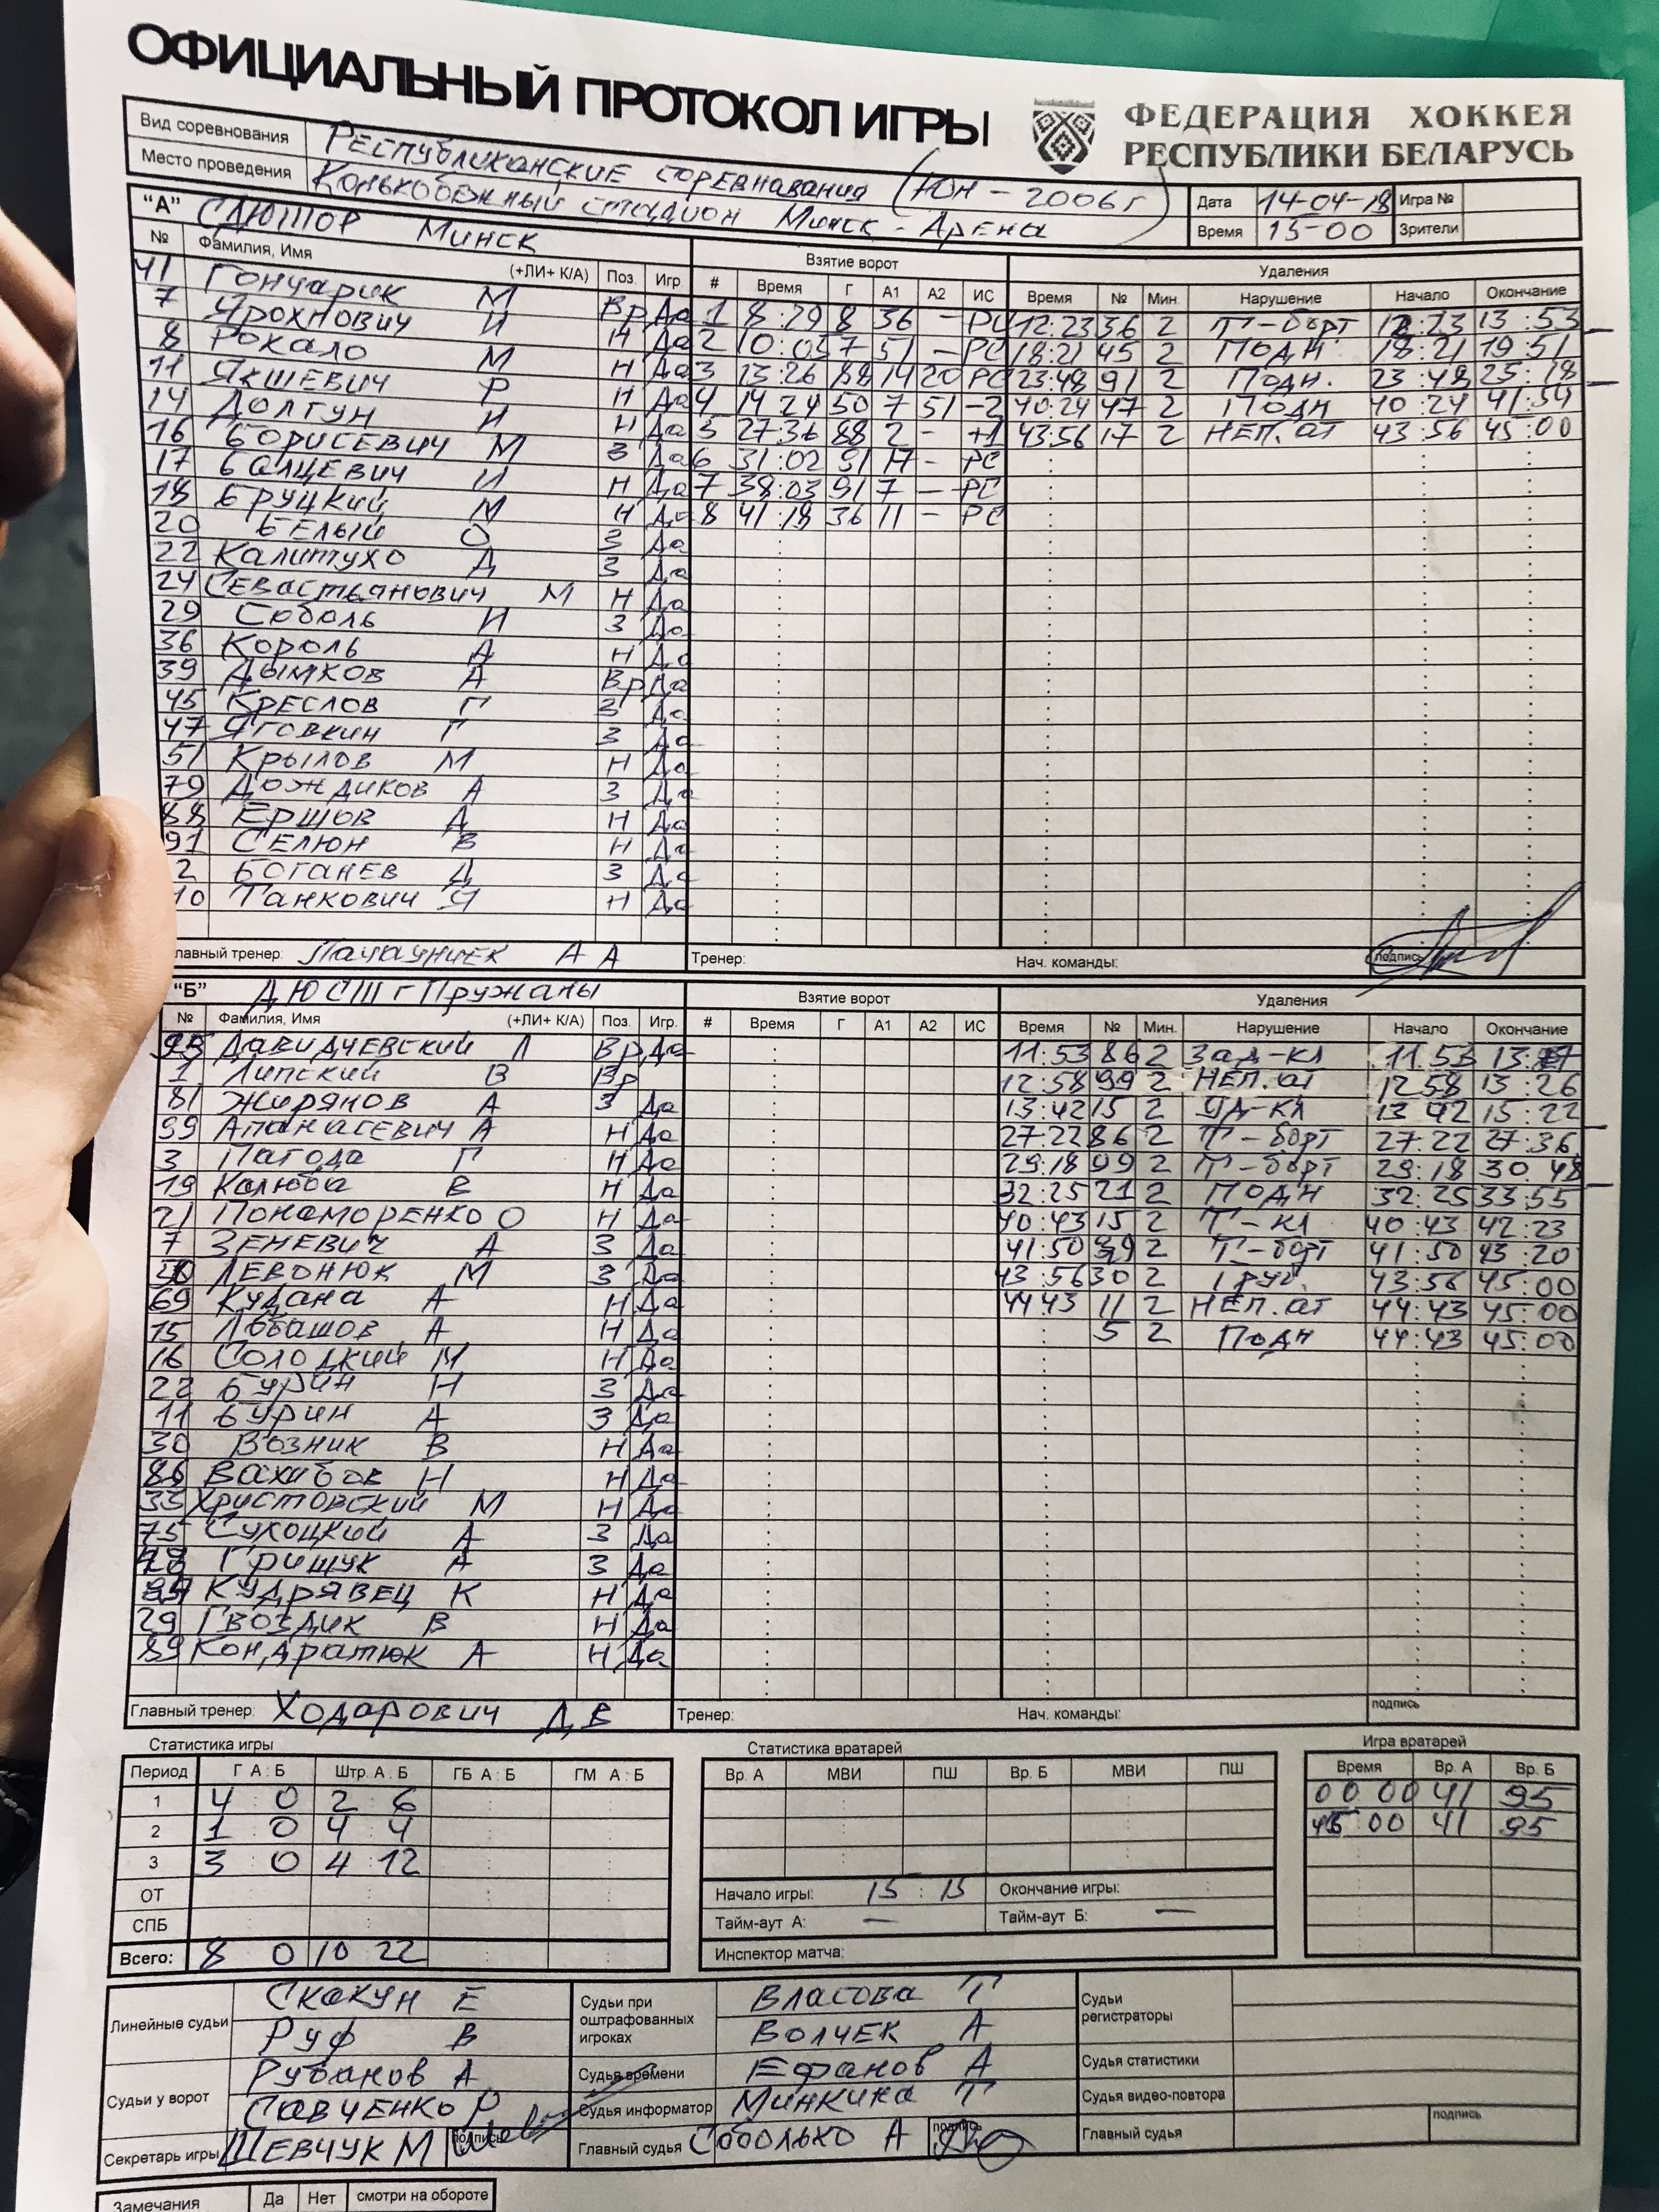 ОФИЦИАЛЬНЫЙ ПРОТОКОЛ ИГРЫ
ФЕДЕРАЦИЯ ХОККЕЯ
РЕСПУБЛИКИ БЕЛАРУСЬ
Вид соревнования Республиканские соревнавания (Юн - 2006г)
Место проведения Конькобежный стадион Минск-Арена
Дата 14-04-18 Игра №
Время 15-00 Зрители
"А" СДЮШОР Минск
Взятие ворот Удаления
№ Фамилия, Имя (+ЛИ+ К/А) Поз. Игр. # Время Г А1 А2 ИС Время № Мин. Нарушение Начало Окончание
41 Гончарик М Вр Да 1 8:29 8 36 - РС 12:23 36 2 Т-борт 12:23 13:53
7 Ярохнович И Н Да 2 10:05 7 51 - РС 18:21 45 2 Подн. 18:21 19:51
8 Рокало М Н Да 3 13:26 88 14 20 РС 23:48 91 2 Подн. 23:48 25:18
11 Якшевич Р Н Да 4 14 24 50 7 51 -2 40:24 47 2 Подн 40:24 41:54
14 Долгун И Н Да 5 27:36 88 2 - +1 43:56 17 2 Неп.ат 43:56 45:00
16 Борисевич М З Да 6 31:02 91 17 - РС
17 Балцевич И Н Да 7 38:03 91 7 - РС
18 Бруцкий М Н Да 8 41:18 36 11 - РС
20 Белый О З Да
22 Калитухо Д З Да
24 Севастьанович М Н Да
29 Соболь И З Да
36 Король А Н Да
39 Дымков А Вр Да
45 Креслов Г З Да
47 Яговкин Г З Да
51 Крылов М Н Да
79 Дождиков А З Да
88 Ершов Д Н Да
91 Селюн В Н Да
2 Боганев Д З Да
10 Танкович Я Н Да
лавный тренер: А А Тренер: Нач. команды: подпись
"Б" ДЮСШ г Пружаны
Взятие ворот Удаления
№ Фамилия, Имя (+ЛИ+ К/А) Поз. Игр. # Время Г А1 А2 ИС Время № Мин. Нарушение Начало Окончание
95 Давидчевский Л Вр Да 11:53 86 2 Зад-кл 11:53
1 Липский В Вр 12:58 99 2 Неп.ат 12 58 13:26
81 Жирянов А З Да 13:42 15 2 Уд-кл 13 42 15:22
99 Апанасевич А Н Да 27:22 86 2 Т-борт 27:22 27:36
3 Пагода Г Н Да 29:18 99 2 Т-борт 29:18 30 48
19 Калюба В Н Да 32:25 21 2 Подн 32:25 33:55
21 Пономоренко О Н Да 40:43 15 2 Т-кл 40:43 42:23
7 Зеневич А З Да 41:50 2 Т-борт 41:50 43:20
Левонюк М З Да 43:56 30 2 Груб. 43:56 45:00
69 Кудана А Н Да 44 43 11 2 Неп.ат 44:43 45:00
15 Лобашов А Н Да 5 2 Подн 44:43 45:00
16 Солодкий М Н Да
22 Бурин Н З Да
11 Бурин А З Да
30 Возник В Н Да
86 Вахибов Н Н Да
33 Христовский М Н Да
75 Сухоцкий А З Да
Грищук А З Да
Кудрявец К Н Да
29 Гвоздик В Н Да
89 Кондратюк А Н Да
Главный тренер: Ходарович Д В Тренер: Нач. команды: подпись
Статистика игры Статистика вратарей Игра вратарей
Период Г А : Б Штр. А : Б ГБ А : Б ГМ А : Б Вр. А МВИ ПШ Вр. Б МВИ ПШ Время Вр. А Вр. Б
1 4 0 2 6 00 00 41 95
2 1 0 4 4 45 00 41 95
3 3 0 4 12
ОТ Начало игры: 15 : 15 Окончание игры:
СПБ Тайм-аут А: — Тайм-аут Б: —
Всего: 8 0 10 22 Инспектор матча:
Линейные судьи Скакун Е Судьи при оштрафованных игроках Власова Т Судьи регистраторы
Руф В Волчек А
Судьи у ворот Рубанов А Судья времени Ефанов А Судья статистики
Савченко Р Судья информатор Минкина Т Судья видео-повтора
Секретарь игры Шевчук М подпись Главный судья Соболько А подпись Главный судья подпись
Замечания Да Нет смотри на обороте